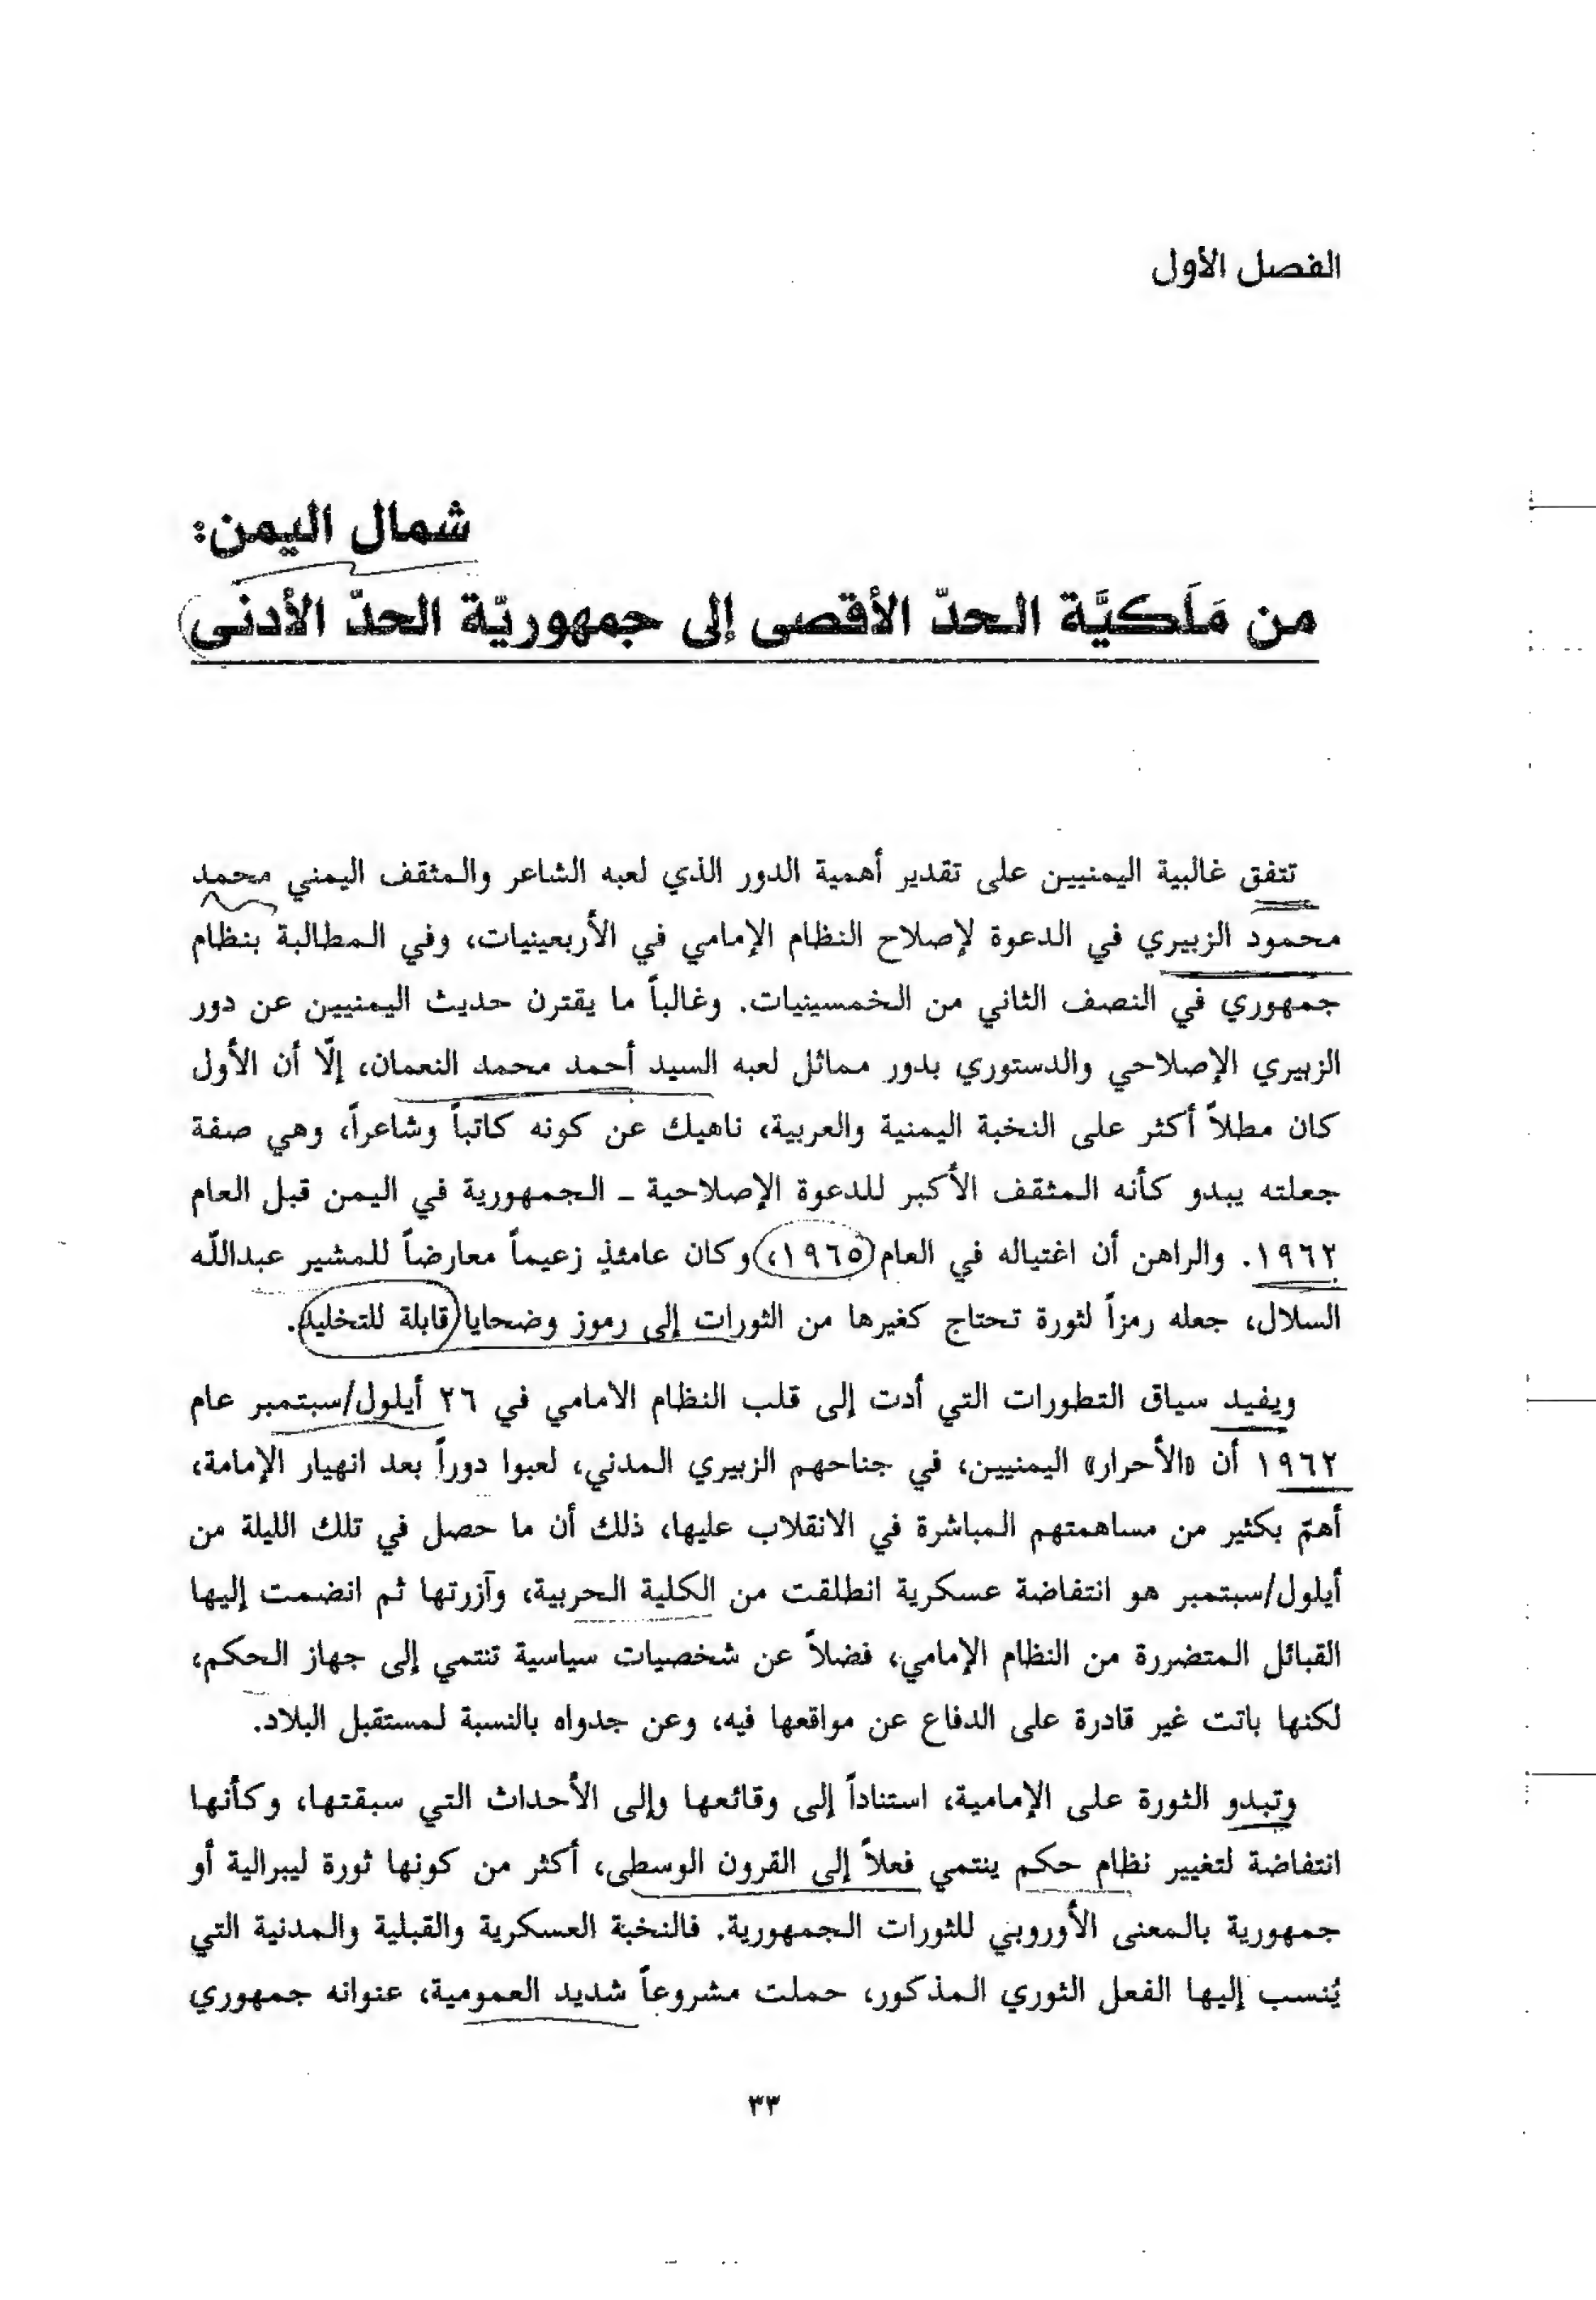 الفصل الأول
شمال اليمن:
من مَلَكيَّة الحدّ الأقصى إلى جمهوريّة الحدّ الأدنى
تتفق غالبية اليمنيين على تقدير أهمية الدور الذي لعبه الشاعر والمثقف اليمني محمد
محمود الزبيري في الدعوة لإصلاح النظام الإمامي في الأربعينيات، وفي المطالبة بنظام
جمهوري في النصف الثاني من الخمسينيات. وغالباً ما يقترن حديث اليمنيين عن دور
الزبيري الإصلاحي والدستوري بدور مماثل لعبه السيد أحمد محمد النعمان، إلّا أن الأول
كان مطلاً أكثر على النخبة اليمنية والعربية، ناهيك عن كونه كاتباً وشاعراً، وهي صفة
جعلته يبدو كأنه المثقف الأكبر للدعوة الإصلاحية ـ الجمهورية في اليمن قبل العام
١٩٦٢. والراهن أن اغتياله في العام ١٩٦٥، وكان عامئذٍ زعيماً معارضاً للمشير عبدالله
السلال، جعله رمزاً لثورة تحتاج كغيرها من الثورات إلى رموز وضحايا قابلة للتخليد.
ويفيد سياق التطورات التي أدت إلى قلب النظام الامامي في ٢٦ أيلول/سبتمبر عام
١٩٦٢ أن «الأحرار» اليمنيين، في جناحهم الزبيري المدني، لعبوا دوراً بعد انهيار الإمامة،
أهمّ بكثير من مساهمتهم المباشرة في الانقلاب عليها، ذلك أن ما حصل في تلك الليلة من
أيلول/سبتمبر هو انتفاضة عسكرية انطلقت من الكلية الحربية، وآزرتها ثم انضمت إليها
القبائل المتضررة من النظام الإمامي، فضلاً عن شخصيات سياسية تنتمي إلى جهاز الحكم،
لكنها باتت غير قادرة على الدفاع عن مواقعها فيه، وعن جدواه بالنسبة لمستقبل البلاد.
وتبدو الثورة على الإمامية، استناداً إلى وقائعها وإلى الأحداث التي سبقتها، وكأنها
انتفاضة لتغيير نظام حكم ينتمي فعلاً إلى القرون الوسطى، أكثر من كونها ثورة ليبرالية أو
جمهورية بالمعنى الأوروبي للثورات الجمهورية. فالنخبة العسكرية والقبلية والمدنية التي
يُنسب إليها الفعل الثوري المذكور، حملت مشروعاً شديد العمومية، عنوانه جمهوري
٣٣